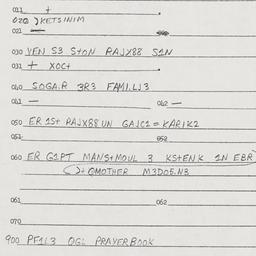 011 +
020 )KETSINIM
021 —
030 VEN S3 S+ON RAJX88 S1N
031 + XOC+
040 SOGA.R 3R3 FAMI.LJ3
041 — 042 —
050 ER 1S+ RAJX88 UN GAJC1 = KARIK2
051 052
060 ER G1PT MANS+MOUL 3 KS+ENK IN EBR
+ QMOTHER M3D05.N3
061 062
070
900 PF1L3 OGL PRAYERBOOK